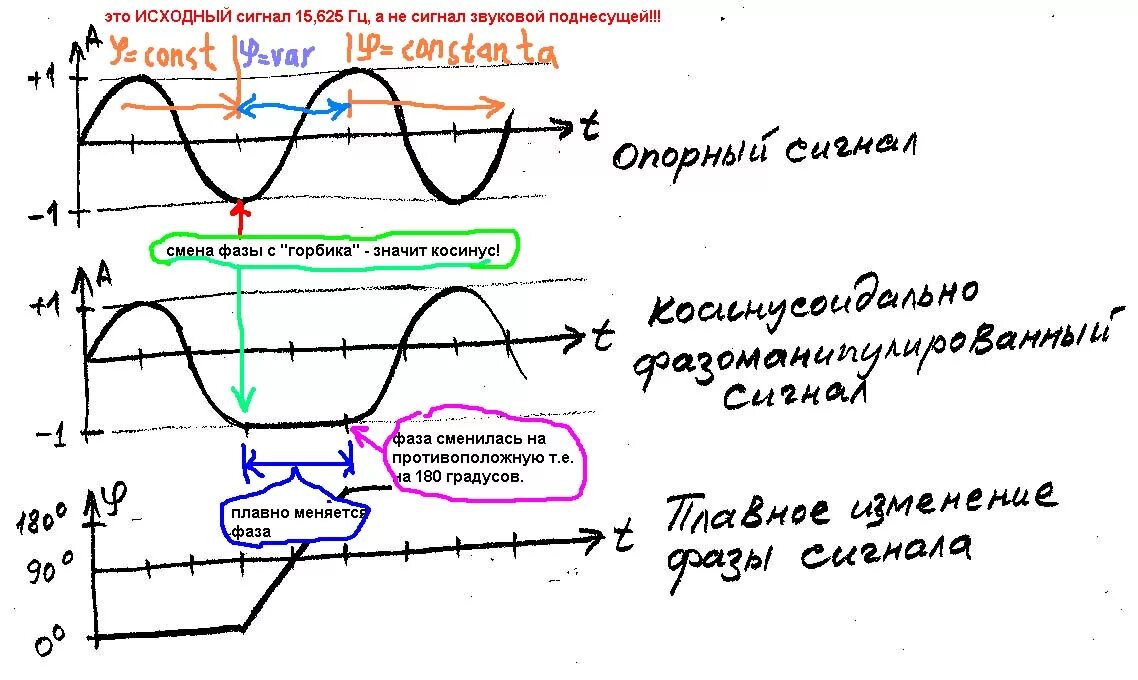 это ИСХОДНЫЙ сигнал 15,625 Гц, а не сигнал звуковой поднесущей!!!
A φ=const φ=var φ=constanta
+1
t
Опорный сигнал
-1
смена фазы с "горбика" - значит косинус!
A
+1
t
Косинусоидально
фазоманипулированный
сигнал
-1
фаза сменилась на
противоположную т.е.
на 180 градусов.
φ
180°
плавно меняется
фаза
t
Плавное изменение
фазы сигнала
90°
0°